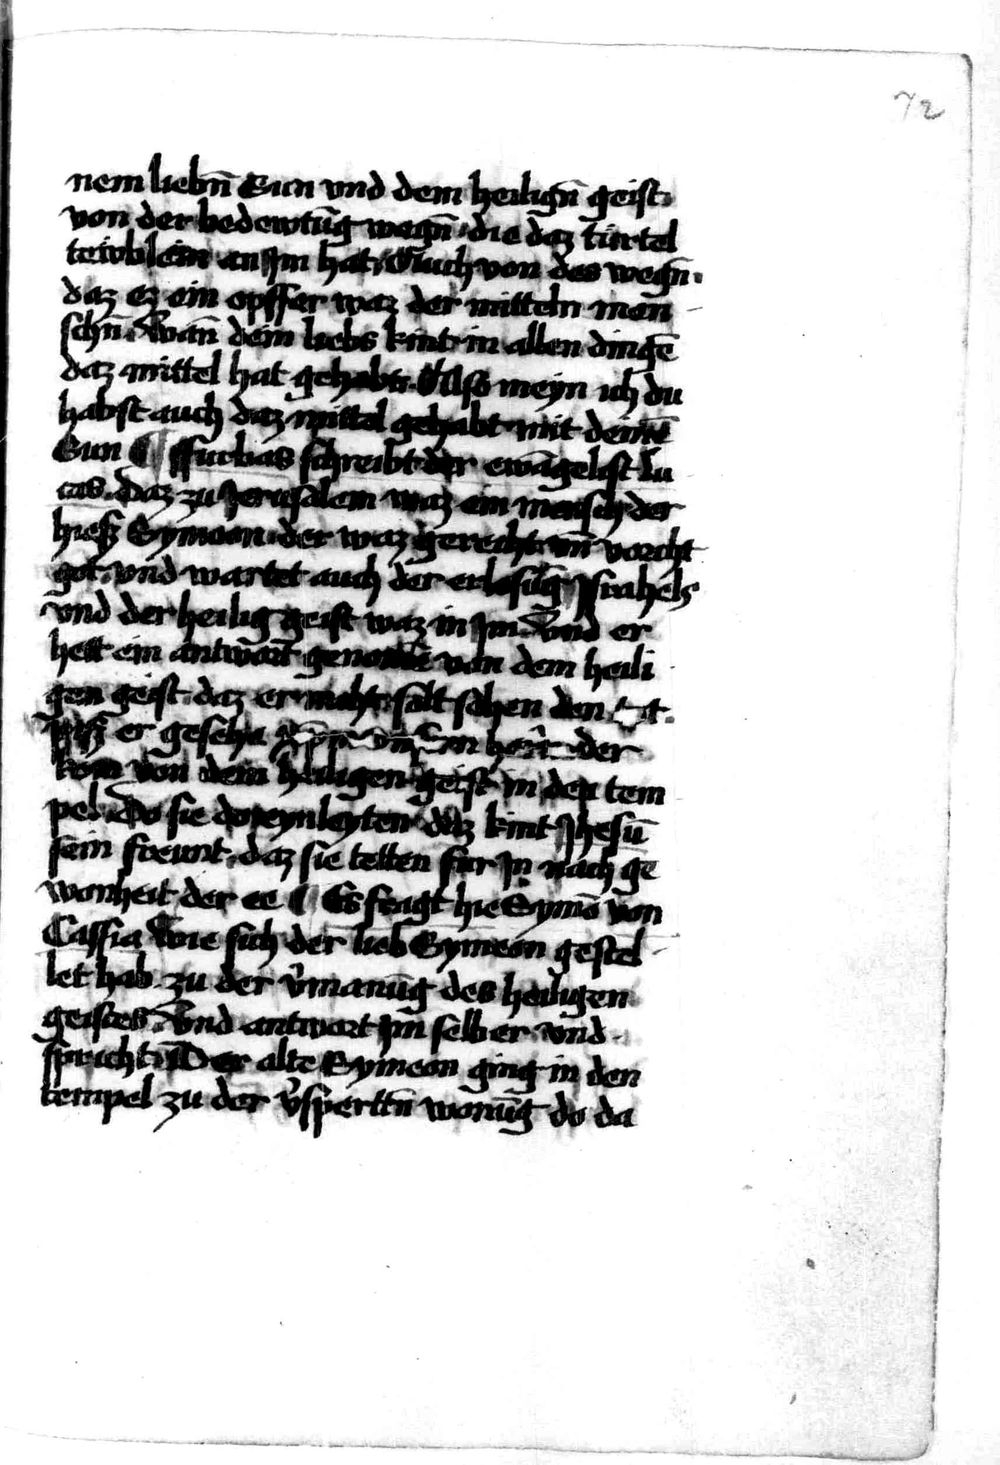 72
nem liebñ Sun vnd dem heiligñ geist.
von der bedewtūg wegñ. die daz turtel
tewblein an Im hat. Auch von des wegñ.
daz ez ein opffer waz der mitteln men
schñ. Wañ dein liebs kint in allen dingē
daz mittel hat gehabt. Also meyn ich du
habst auch daz mittel gehabt mit deinē
Sun ¶ ffurbas schreibt der ewāgelist Lu
cas. Daz zu Jerusalem waz ein mensch der
hiesz Symeon. der waz gerecht vñ vorcht
got. vnd wartet auch der erlosūg Israhels
vnd der heilig geist waz in Im. Vnd er
hett ein antwort genomē von dem heili
gen geist. daz er nicht solt sehen den
er geseha der
kom von dem heiligen geist in den tem
pel. Do sie do eynleyten daz kint Jhesū
sein freunt. daz sie tetten fur In nach ge
wonheit der ee ¶ Es fragt hie Symō von
Cassia Wie sich der lieb Symeon gestel
let hab zu der v̓manūg des heiligen
geistes. Vnd antwort Im selber vnd
spricht. Der alte Symeon ging in den
tempel zu der v̓sperttñ wonūg do da